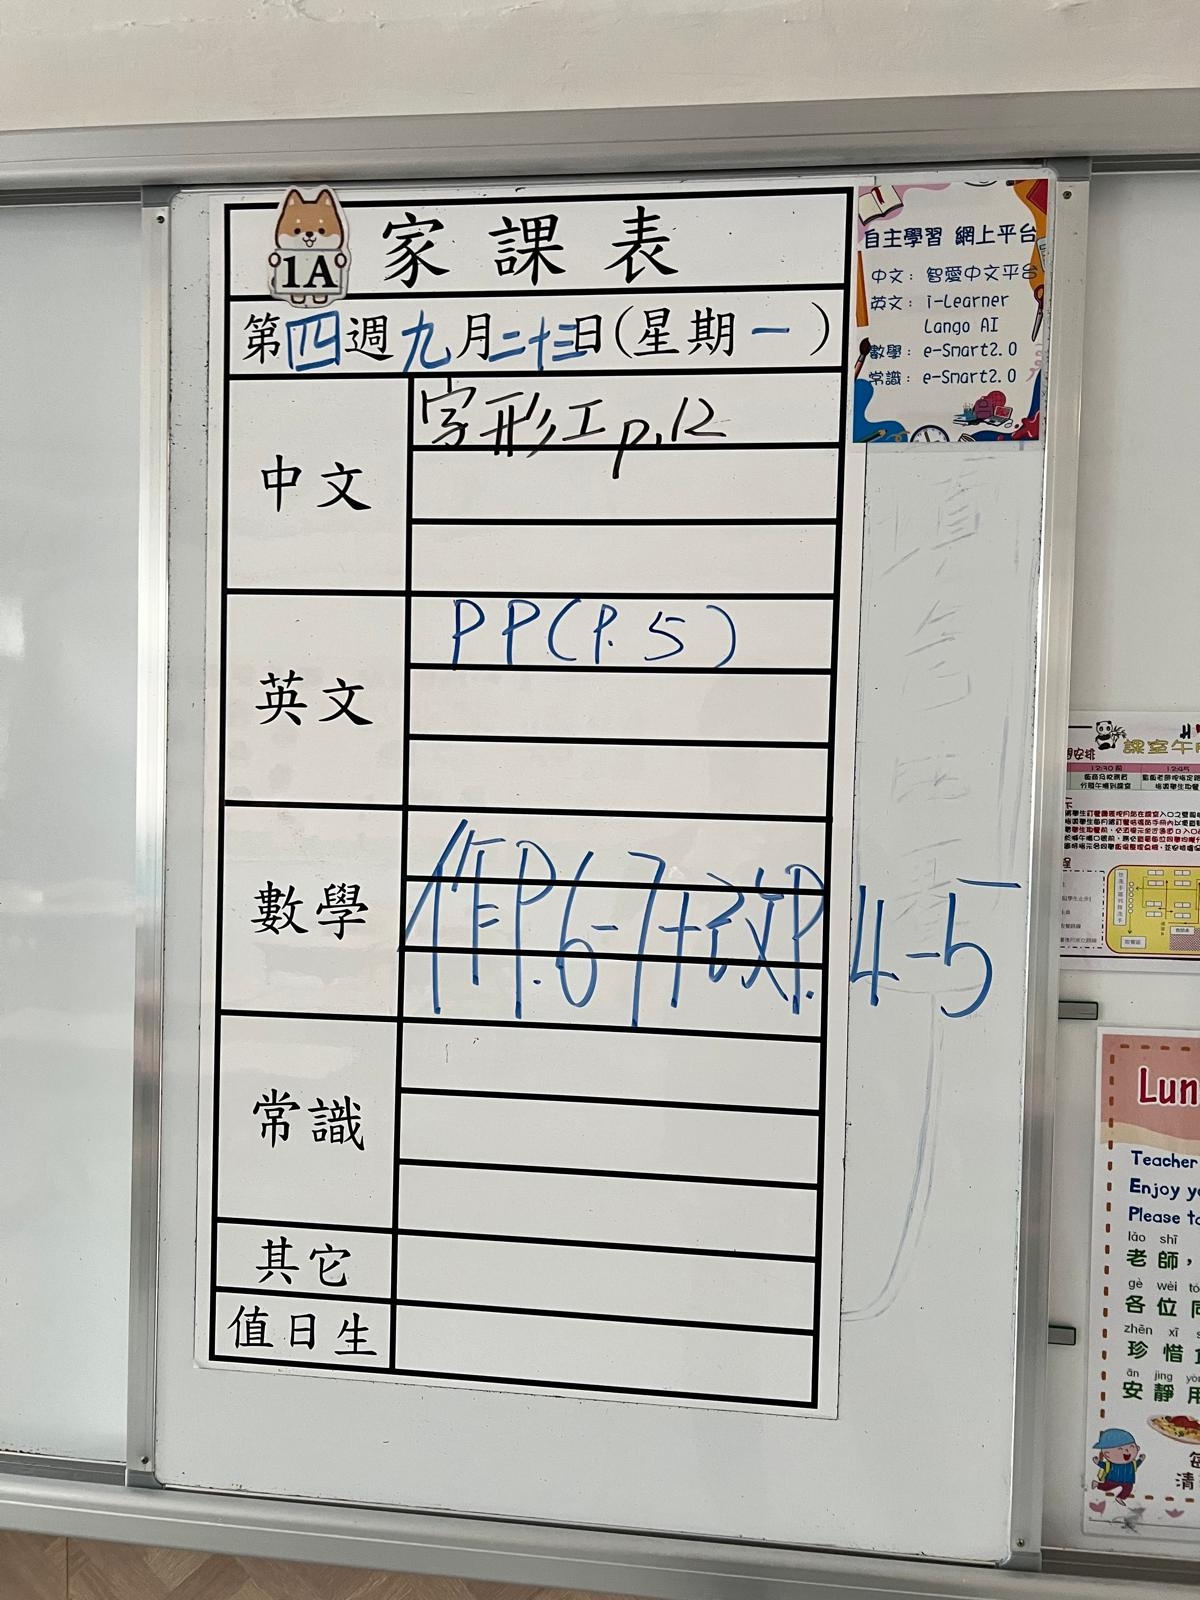 1A
家課表
第四週九月二十三日(星期一)
中文
字形工p.12
英文
PP(P.5)
數學
作P.6-7+改P.4-5
常識
其它
值日生
自主學習 網上平台
中文：智愛中文平台
英文：i-Learner
Lango AI
數學：e-Smart2.0
常識：e-Smart2.0
課室午
12:30 12:45
Lun
Teacher
Enjoy yo
Please to
lǎo shī
老師，
gè wèi tó
各位同
zhēn xī
珍惜
ān jìng
安靜用
清